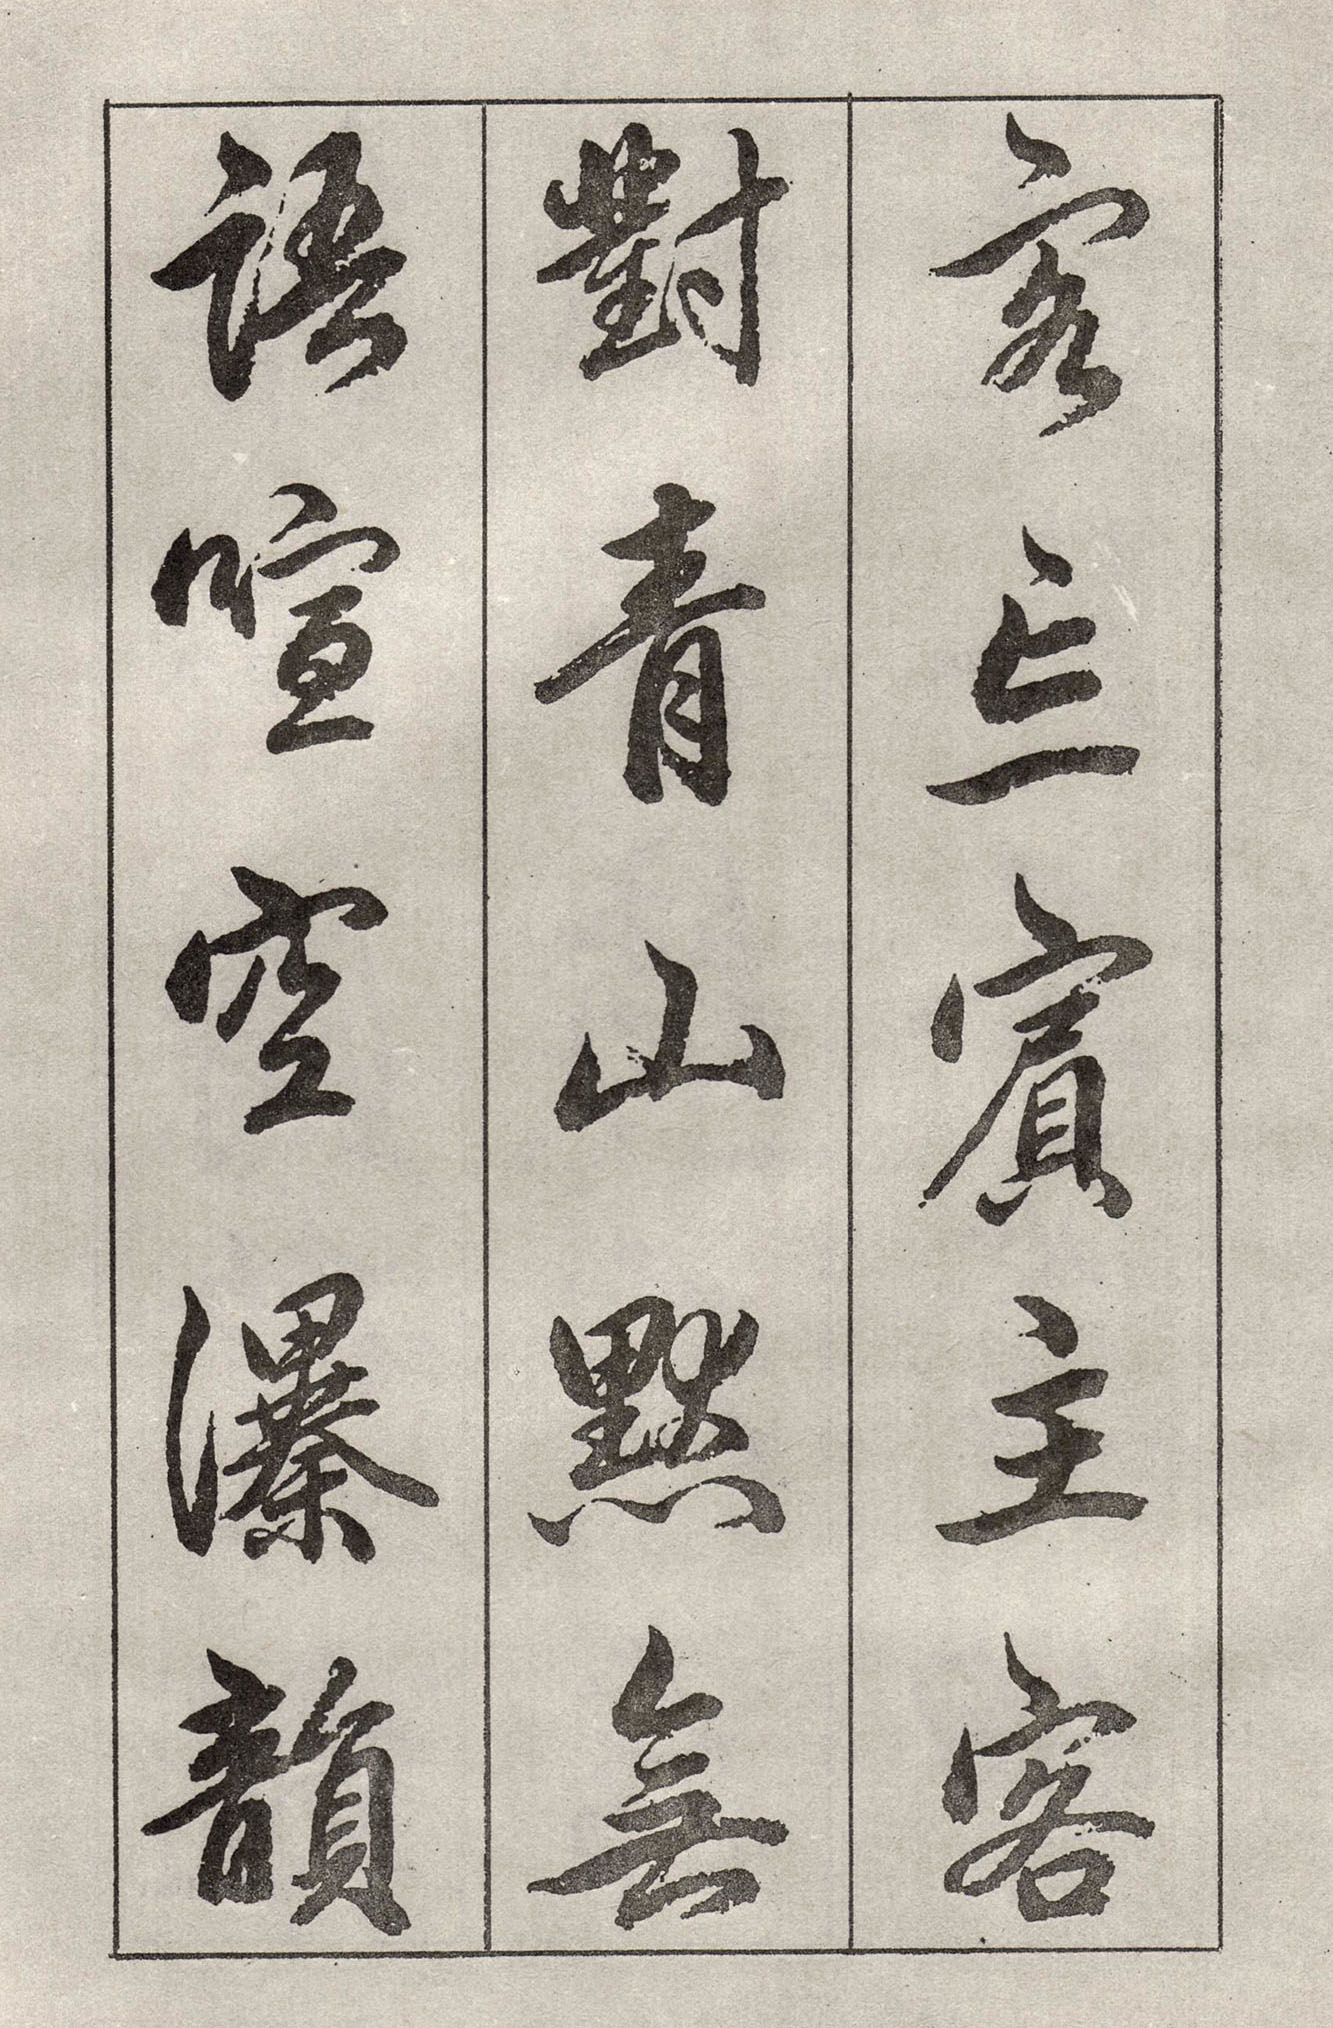 寥忘賓主客
對青山默無
語喧空瀑韻